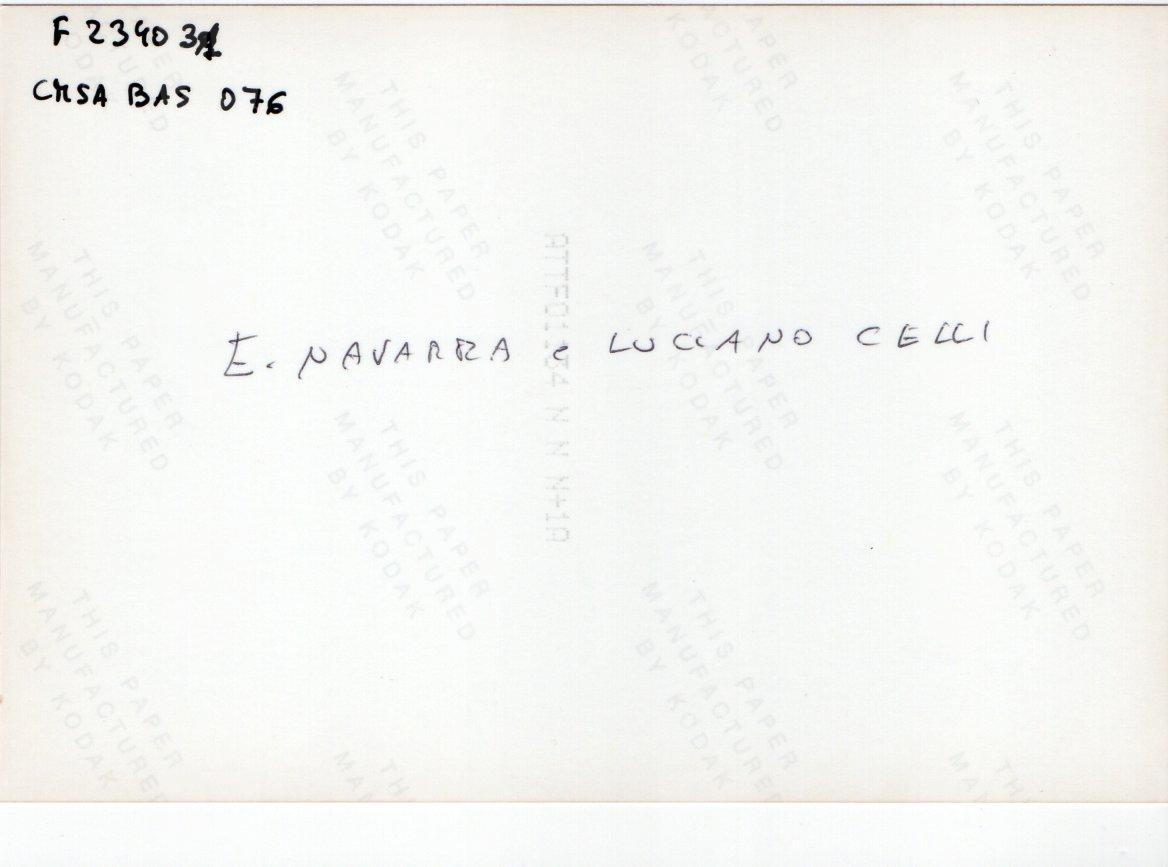 F 23403
CMSA BAS 076
E. NAVARRA e LUCIANO CELLI
THIS PAPER
MANUFACTURED
BY KODAK